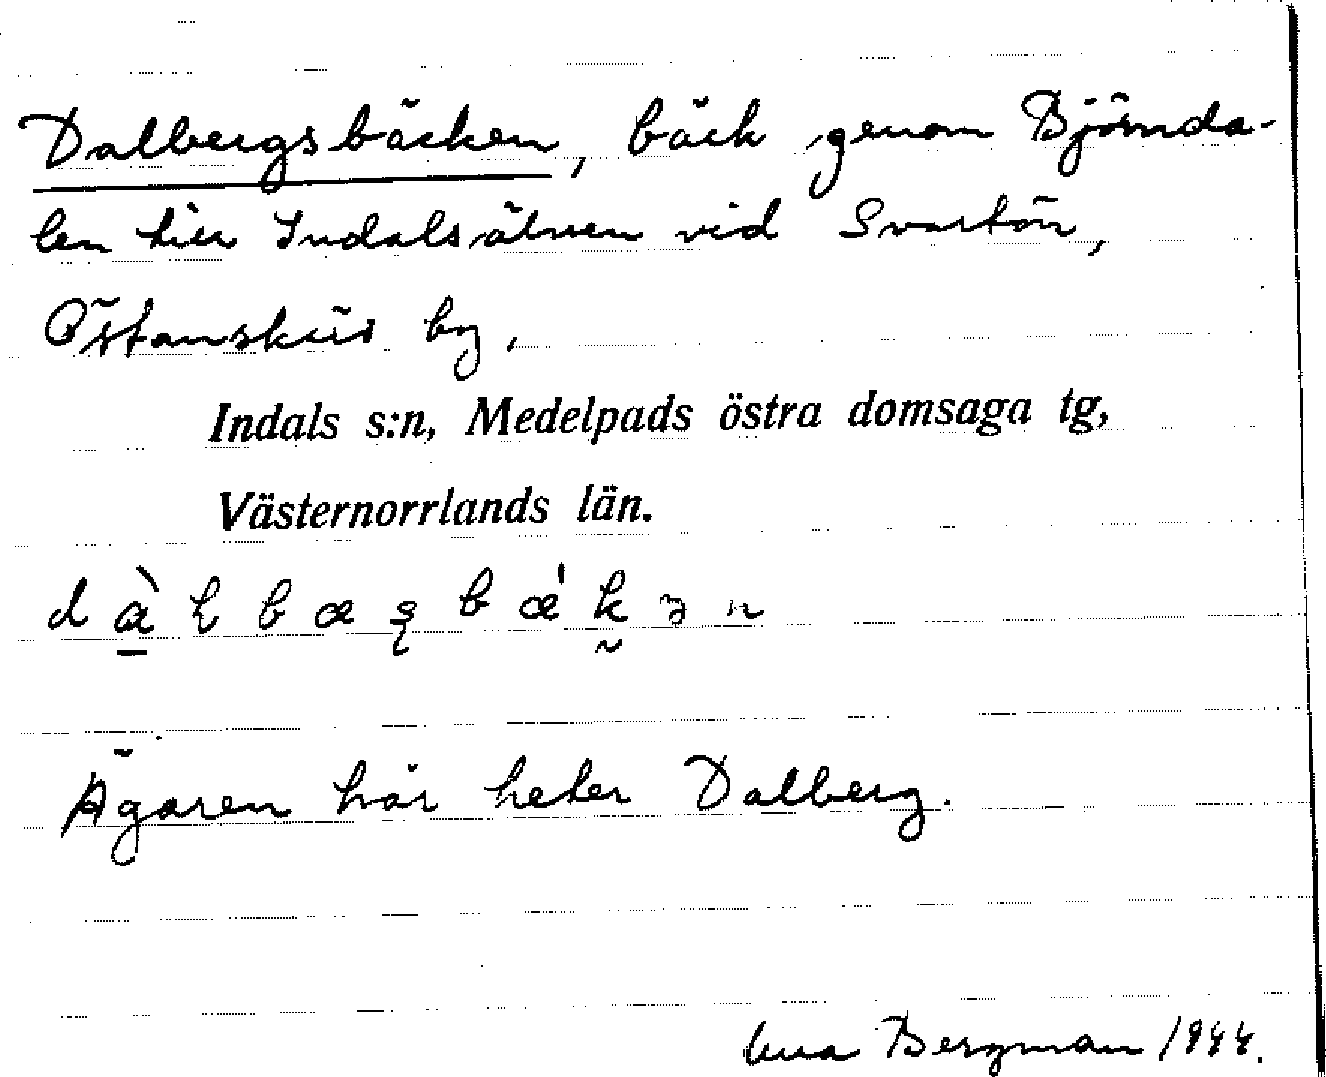 Dalbergsbäcken, bäck genom Björnda-
len till Indalsälven vid Svartön,
Östanskär by,
Indals s:n, Medelpads östra domsaga tg,
Västernorrlands län.
Ägaren här heter Dalberg.
Bergman 1944.